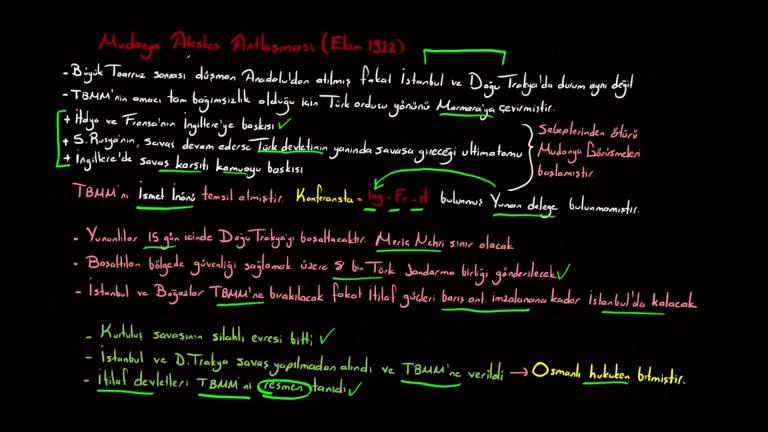 Mudanya Ateşkes Antlaşması (Ekim 1922)
- Büyük Taarruz sonrası düşman Anadolu'dan atılmış fakat İstanbul ve Doğu Trakya'da durum aynı değil
- TBMM'nin amacı tam bağımsızlık olduğu için Türk ordusu yönünü Marmara'ya çevirmiştir.
+ İtalya ve Fransa'nın İngiltere'ye baskısı ✓
+ S. Rusya'nın, savaş devam ederse Türk devletinin yanında savaşa gireceği ultimatomu
+ İngiltere'de savaş karşıtı kamuoyu baskısı
Sebeplerinden ötürü
Mudanya Görüşmeleri
başlamıştır.
TBMM'ni İsmet İnönü temsil etmiştir. Konferansta = İng - Fr - İt bulunmuş Yunan delege bulunmamıştır.
- Yunanlılar 15 gün içinde Doğu Trakya'yı boşaltacaktır. Meriç Nehri sınır olacak
- Boşaltılan bölgede güvenliği sağlamak üzere 8 bin Türk Jandarma birliği gönderilecek ✓
- İstanbul ve Boğazlar TBMM'ne bırakılacak fakat İtilaf güçleri barış ant. imzalanana kadar İstanbul'da kalacak
- Kurtuluş savaşının silahlı evresi bitti ✓
- İstanbul ve D.Trakya savaş yapılmadan alındı ve TBMM'ne verildi → Osmanlı hukuken bitmiştir.
- İtilaf devletleri TBMM'ni resmen tanıdı ✓